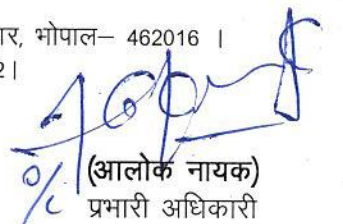 ार, भोपाल– 462016 ।
2।
(आलोक नायक)
प्रभारी अधिकारी